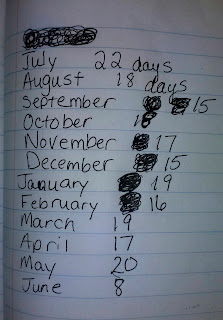 July 22 days
August 18 days
September 15
October
November 17
December 15
January 19
February 16
March 19
April 17
May 20
June 8